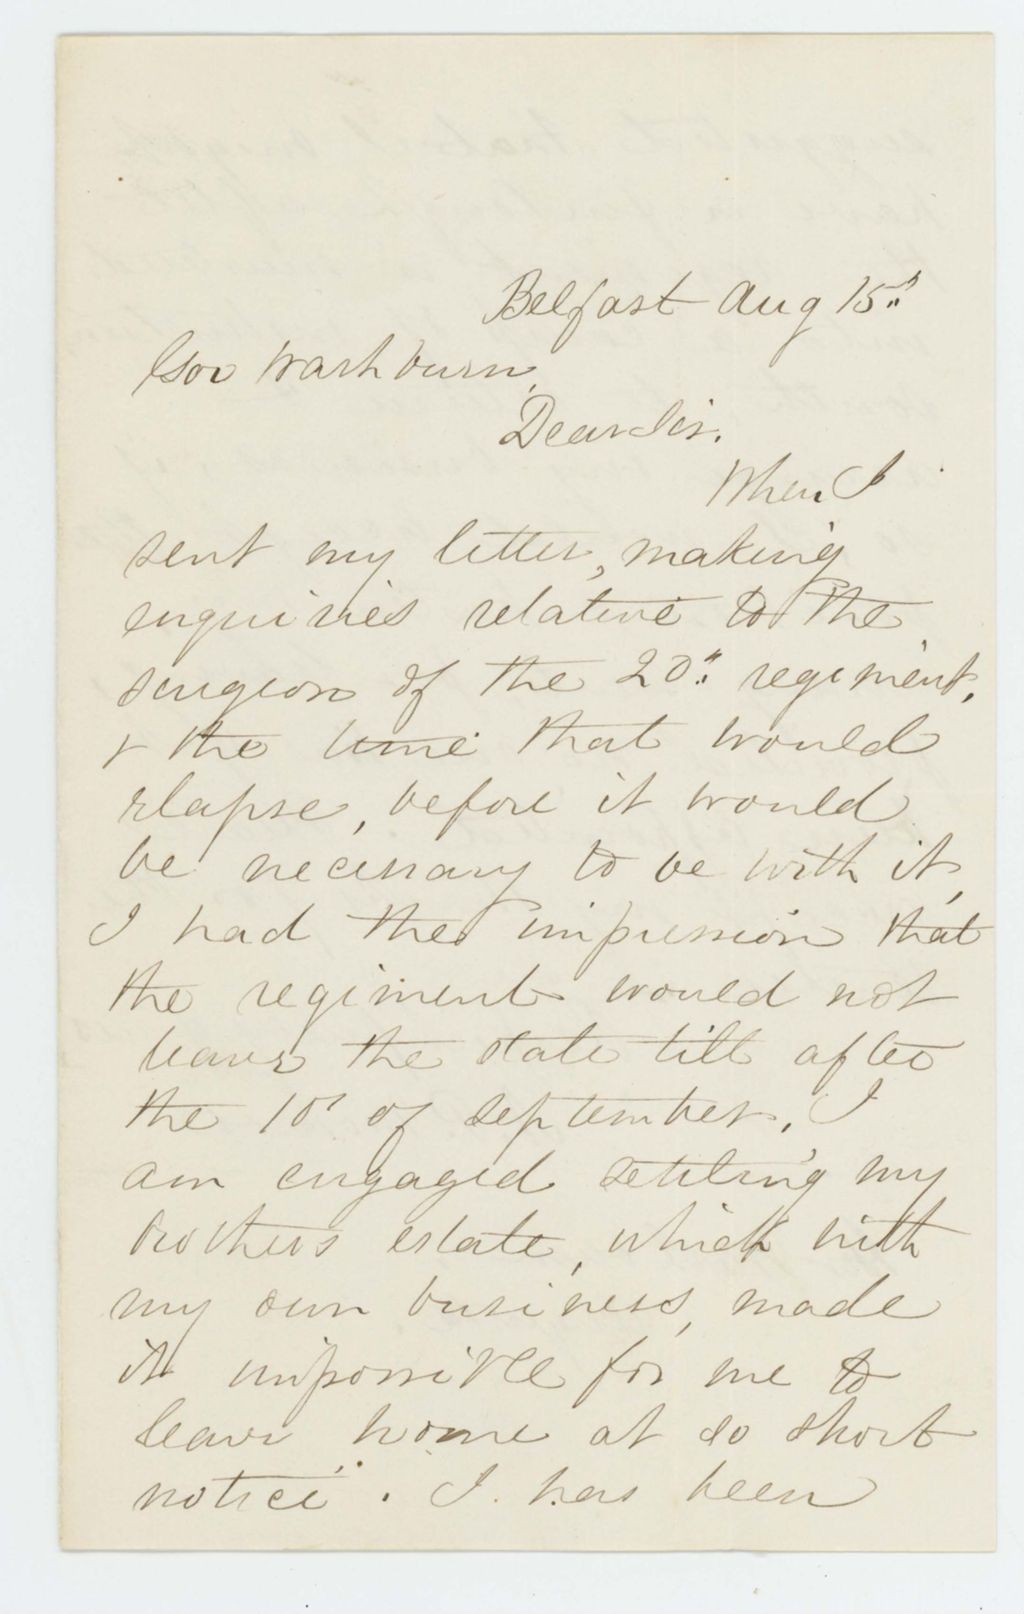 Belfast Aug 15th
Gov Washburn,
Dear Sir.
When I
sent my letter, making
enquiries relative to the
surgeon of the 20th regiment,
& the time that would
elapse, before it would
be necessary to be with it,
I had the impression that
the regiment would not
leave the state till after
the 10t of september. I
am engaged settling my
brothers estate, which with
my own business, made
it impossible for me to
leave home at so short
notice. I has been